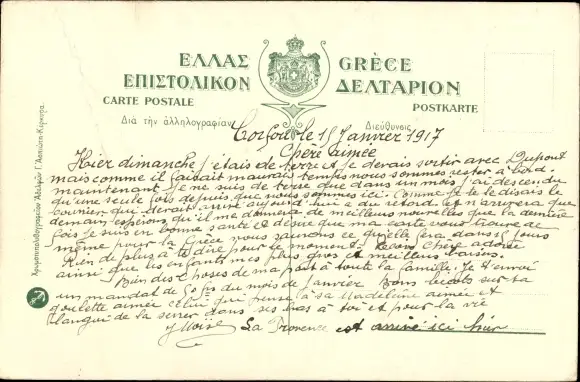 ΕΛΛΑΣ GRÈCE
ΕΠΙΣΤΟΛΙΚΟΝ ΔΕΛΤΑΡΙΟΝ
CARTE POSTALE POSTKARTE
Διὰ τὴν ἀλληλογραφίαν Διεύθυνσις
Corfou le 15 Janvier 1917
Chère aimée
Hier dimanche j'étais de terre et je devais sortir avec Dupont
mais comme il faisait mauvais temps nous sommes rester a bord,
maintenant je ne suis de terre que dans un mois, j'ai descendu
qu'une seule fois depuis que nous sommes ici. Comme je te le disais le
courrier qui devait arrivé aujourd'hui a du retard et n'arrivera que
demain espérons qu'il me donnera de meilleurs nouvelles que la dernière
fois je suis en bonne santé et désire que ma carte vous trouve de
même pour la Grèce nous saurons ce qu'elle fera dans jours
Rien de plus à te dire pour le moment. Reçois Chère adorée
ainsi que les enfants mes plus gros et meilleurs baisers.
Bien des choses de ma part à toute la famille. Je t'envoi
un mandat de 50 frs du mois de Janvier. Bons bécots sur ta
goulette aimée Celui qui pense à sa Madeleine aimée et
languit de la serrer dans ses bras à toi et pour la vie
La Provence est arrivé ici hier